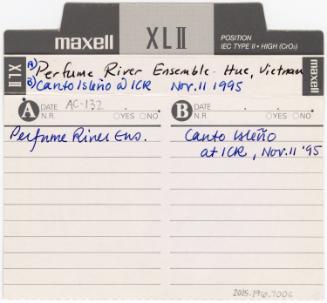 maxell XLII POSITION
IEC TYPE II • HIGH (CrO₂)
XLII
maxell
A) Perfume River Ensemble - Hue, Vietnam
B) Canto Isleño @ ICR Nov. 11 1995
A DATE AC-132
N.R. ○YES ○NO
B DATE
N.R. ○YES ○NO
Perfume River Ens.
Canto Isleño
at ICR, Nov. 11 '95
2015.196.7006